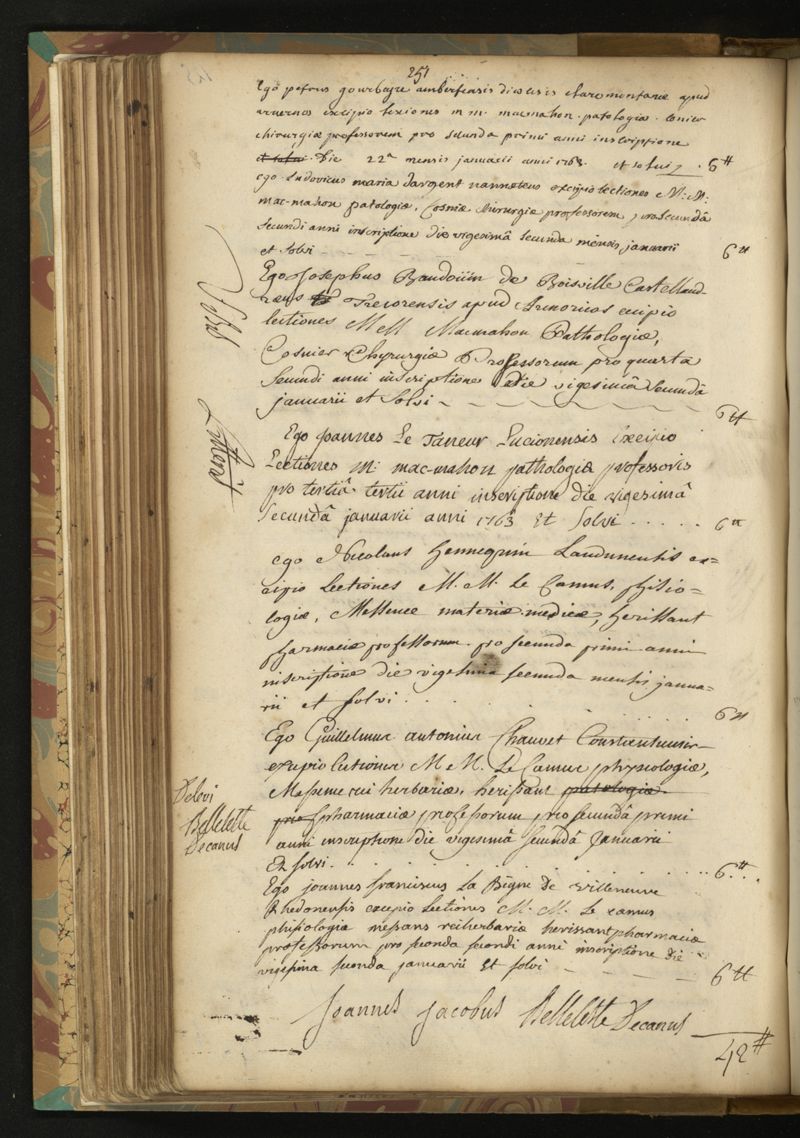 251
Ego petrus gourbeyre ambertensis diocesis claromontanæ apud
arvernos excipio lexiones m m. macmahon. patologiæ. Cosnier
chirurgiæ professorem pro secunda primi anni inscriptione
et solui. Die 22a mensis januarii anni 1763. et solui. 6tt
ego Ludovicus maria Dargent nannetæus excipio lectiones M: M:
mac-mahon patologiæ, Cosnié chirurgiæ professorem, pro secundâ
secundi anni inscriptione Die vigesimâ secunda mensis januarii
et solvi 6tt
Ego Josephus Baudoüin de Boisville Castellaud-
ræus Trecorensis apud Armoricos excipio
lectiones MM Macmahon Pathologiæ,
Cosnier Chyrurgiæ Professorum pro quarta
secundi anni inscriptione die vigesimâ secundâ
januarii et solvi 6tt
Ego Joannes Le Taneur Lucionensis Excipio
Lectiones M: mac-mahon pathologiæ professoris
pro tertiâ tertii anni inscriptione die vigesimâ
secundâ januarii anni 1763 Et solvi ..... 6tt
ego Nicolaus hennequin Laudunensis ex=
cipio Lectiones M. M. Le Camus, phisio=
logiæ, Messence materiæ medicæ, herissant
pharmaciæ professorum. pro secunda primi anni
inscriptione die vigesima secunda mensis janua=
rii et solvi . . . . . . . . 6tt
Ego Guillelmus antonius Chauvet Constantiensis
excipio lectiones M M. Le Camus physiologiæ,
Messence rei herbariæ, herissant patologiæ
pro pharmaciæ professorum pro secundâ primi
anni inscriptione die vigesimâ secundâ Januarii
Et solvi. . . . . . . . . 6tt
Delevi
Bellelette
Decanus
Ego joannes franciscus La Bigne De villeneuve
Rhedonensis excepio Lectiones M. M. Le camus
phisiologiæ messans rei herbariæ herissant pharmaciæ
professorum pro seconda secondi anni inscriptione die
vigesima seconda januarii Et solvi 6tt
Joannes Jacobus Bellelette Decanus
42tt